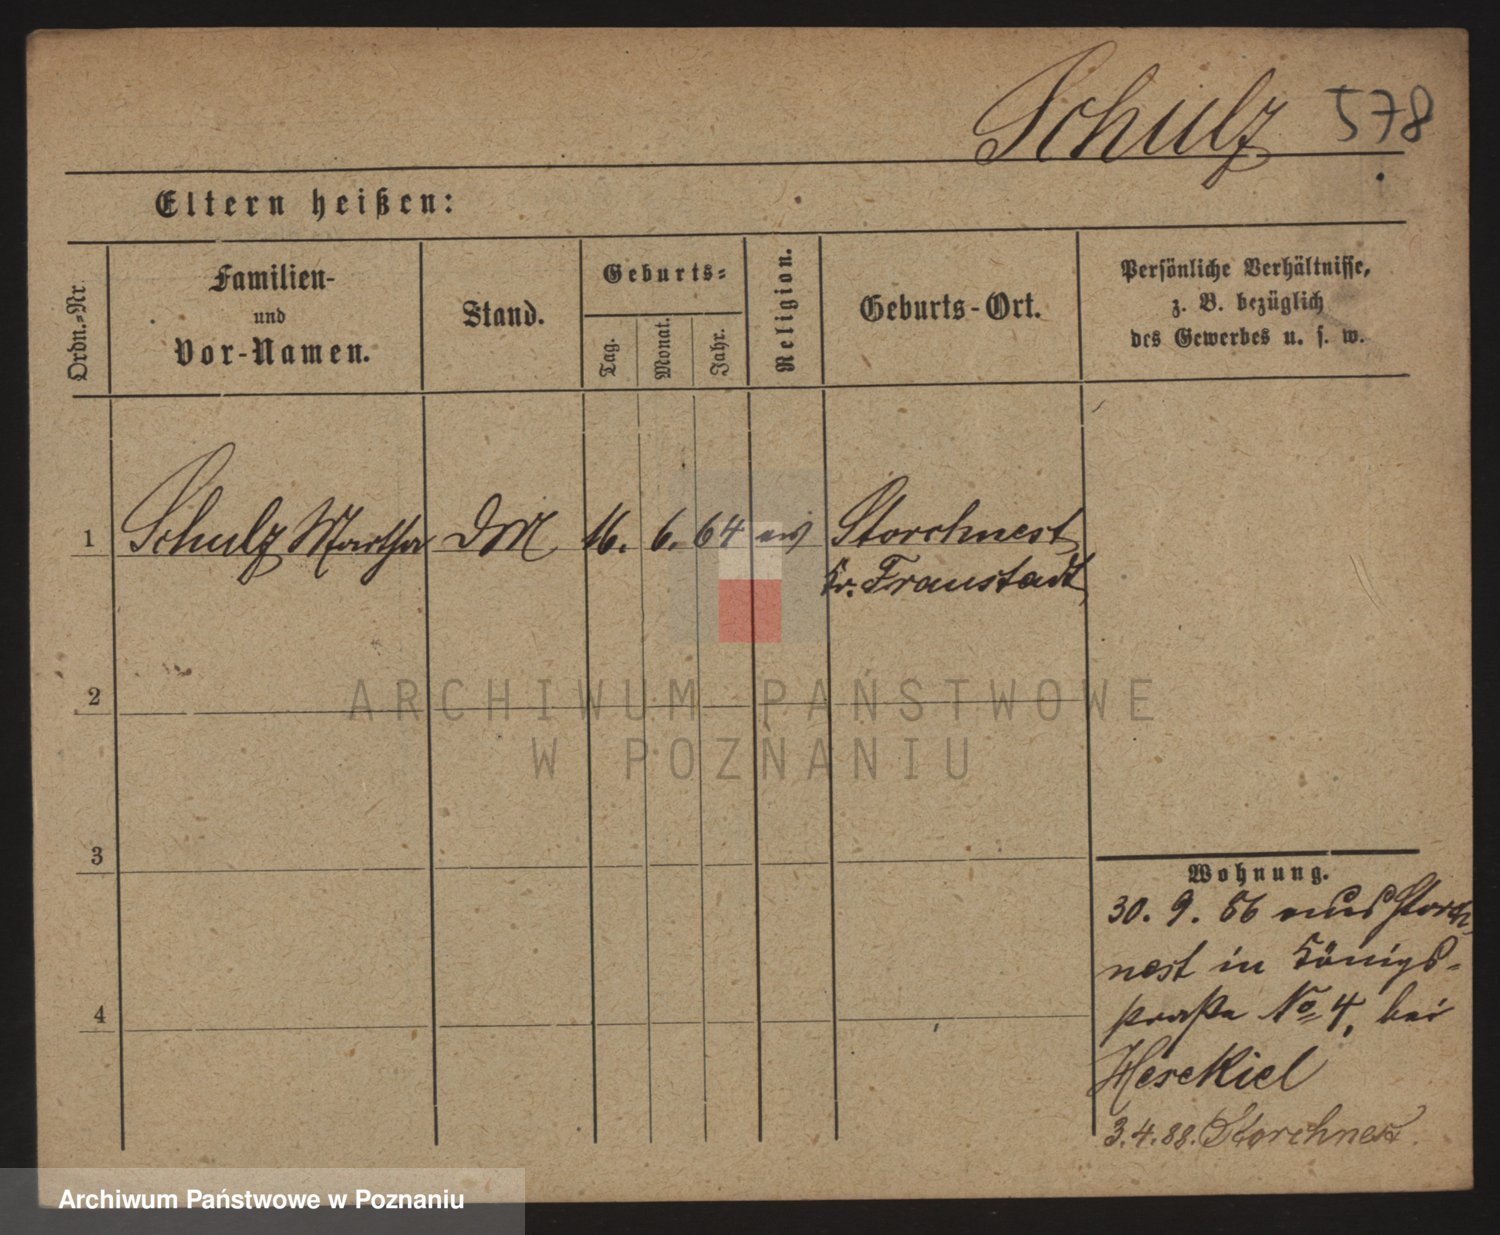 Schulz 578
Eltern heißen:
Ordn.-Nr.
Familien-
und
Vor-Namen.
Stand.
Geburts-
Tag.
Monat.
Jahr.
Religion.
Geburts-Ort.
Persönliche Verhältnisse,
z. B. bezüglich
des Gewerbes u. s. w.
1 Schulz Martha DM 16. 6. 64 ev Storchnest
Kr. Fraustadt
2
ARCHIWUM PAŃSTWOWE
W POZNANIU
3
Wohnung.
30. 9. 86 aus Storch
nest in Königs-
straße No 4, bei
Hesekiel
4
3.4.88. Storchnest.
Archiwum Państwowe w Poznaniu